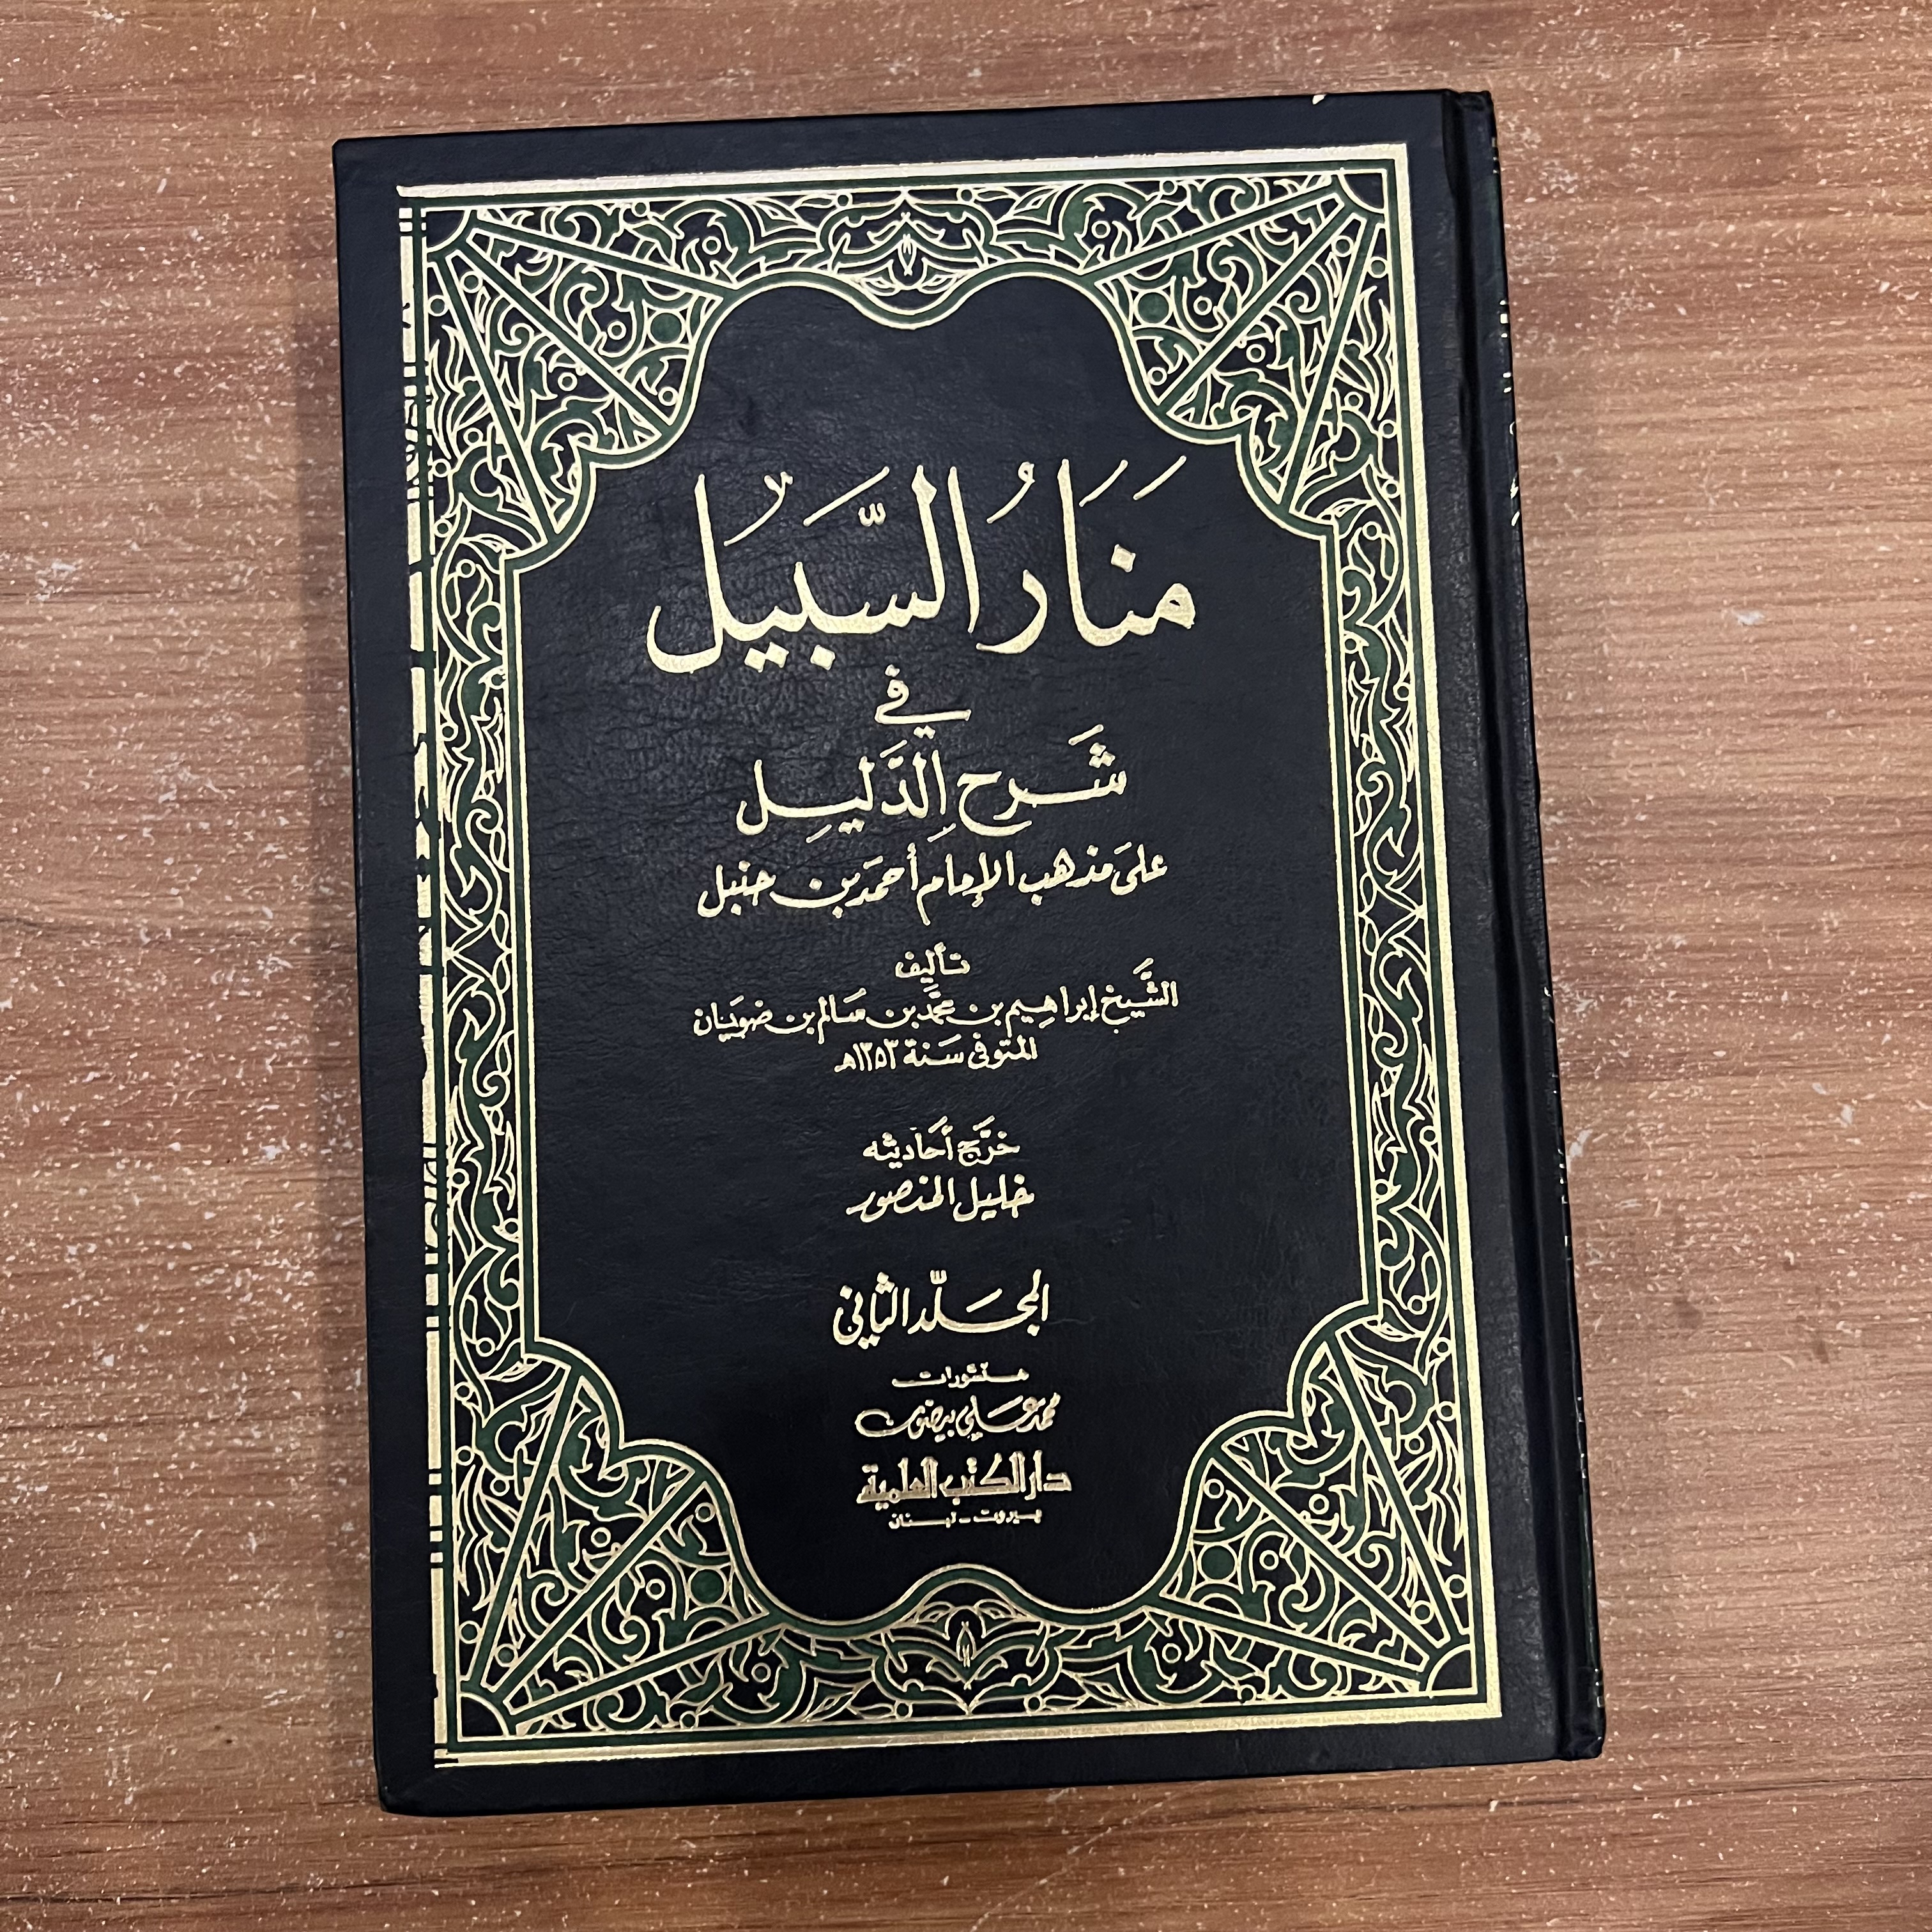 مَنَارُ السَّبِيْل
في
شَرح الدَّليل
علىَ مذهب الإمام أحمَد بن حنبل
تأليف
الشَّيخ إبراهيم بن محمَّد بن سَالم بن ضويَان
المتوفى سَنة ١٣٥٣هـ
خرَّج أحَاديثه
خليل المنصور
المجَلّد الثاني
منشورات
محمد عَلي بيضون
دار الكتب العلمية
بيروت - لبنان